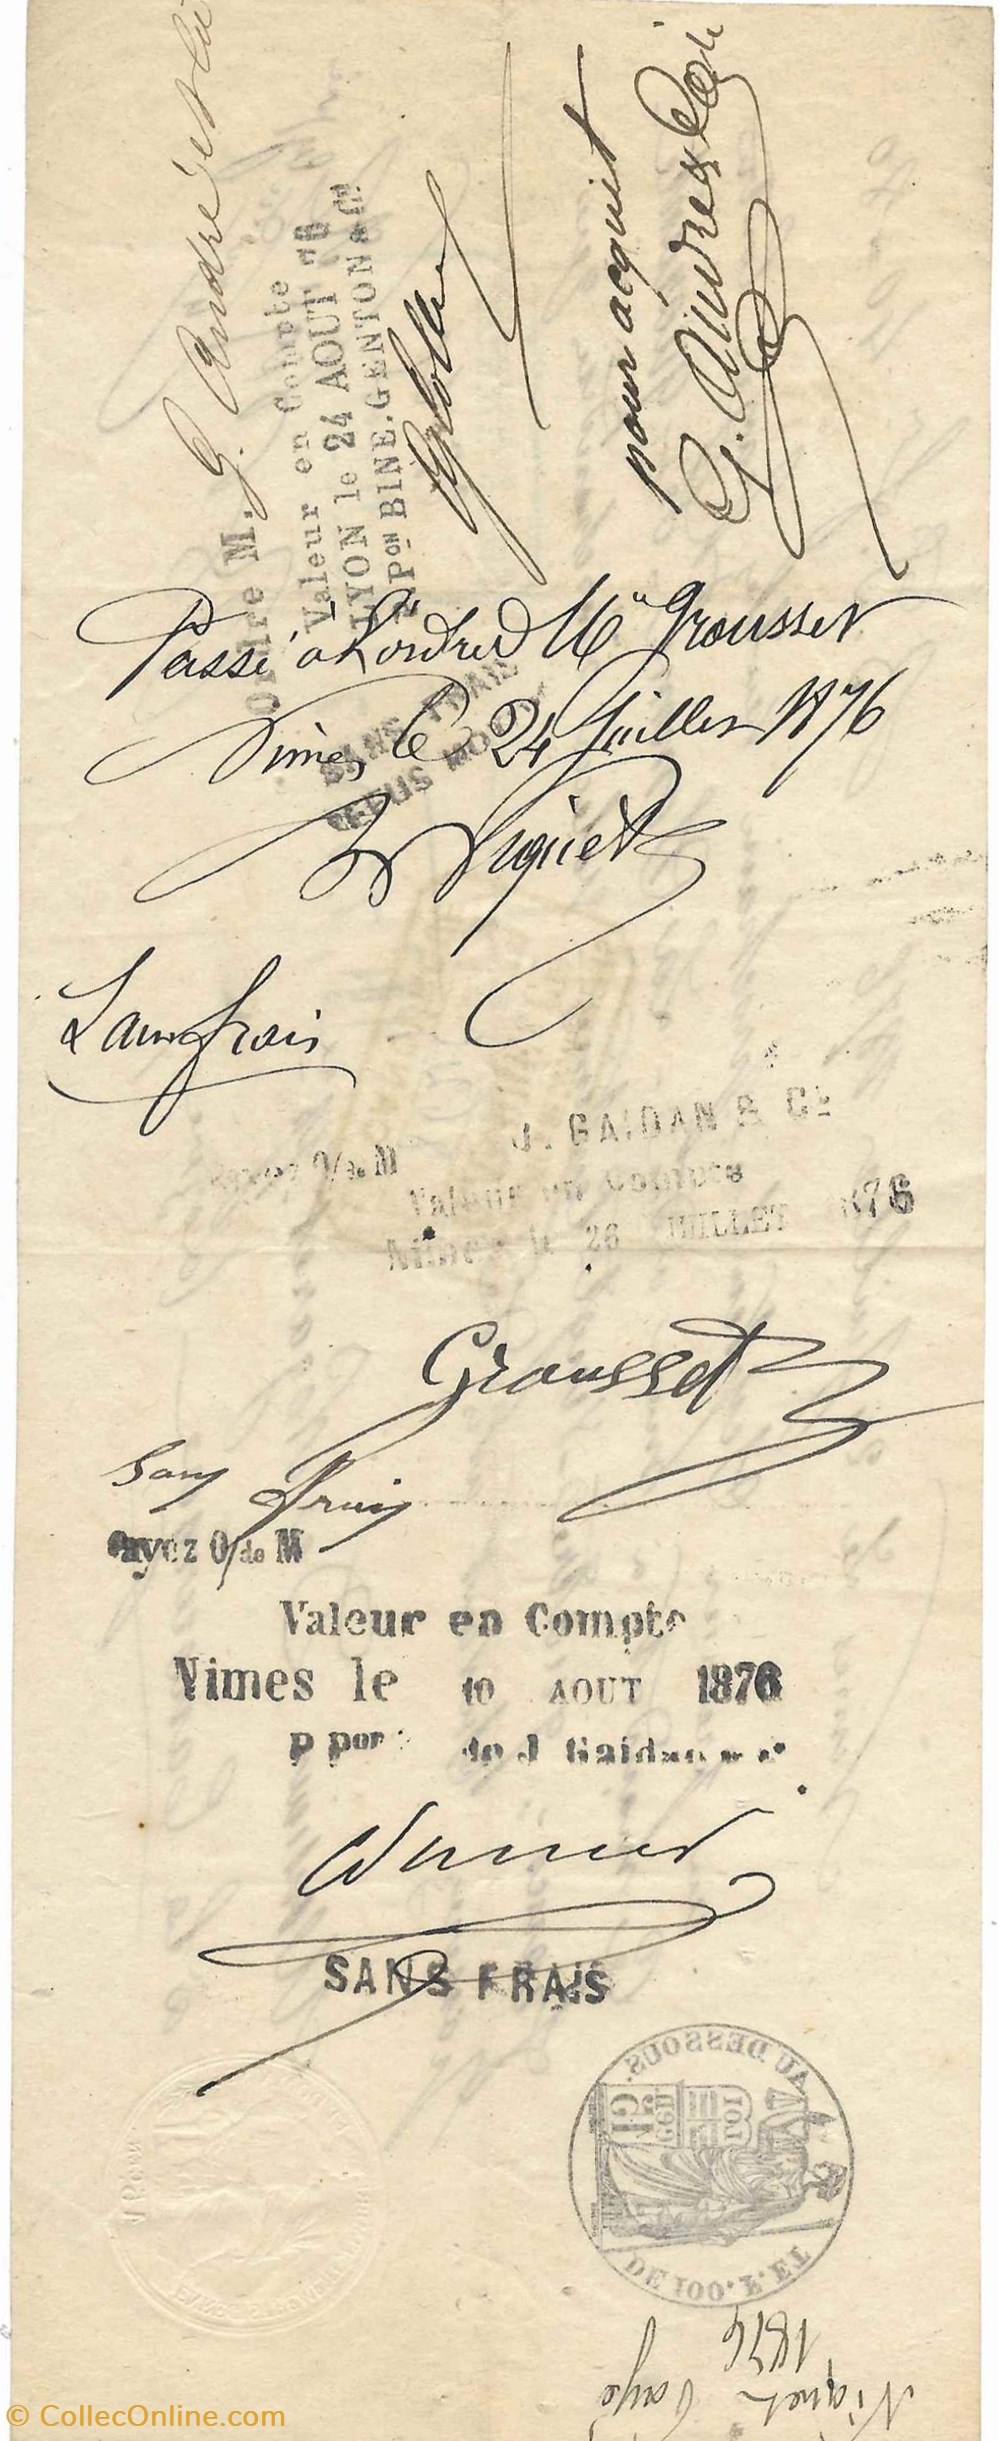 ordre M. G. André
Valeur en Compte
LYON le 24 AOUT
P.Pon BINE.GENTON & Cie
pour acquit
G. André & Cie
Passé à l'ordre d Mr Grousset
Nimes le 24 Juillet 1876
SANS FRAIS
Sans frais
J. GAIDAN & Cie
Payez O/de M
Valeur en Compte
Nimes le 26 JUILLET 1876
Grousset
Sans Frais
Payez O/de M
Valeur en Compte
Nimes le 10 AOUT 1876
P pon de J Gaidan & Cie
SANS FRAIS
AU DESSOUS.
DE 100.F. ET
1876
Payé
© CollecOnline.com